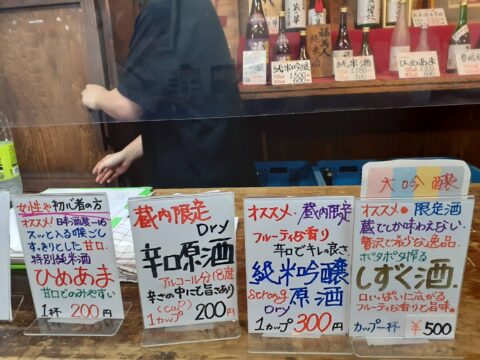 純米吟醸
純米酒
ひめあま
女性や初心者の方
オススメ! 日本酒度-16
スーッと入る喉ごし
すっきりとした甘口。
特別純米酒
ひめあま
甘口でのみやすい
1杯 200円
蔵内限定
Dry
辛口原酒
アルコール分18度
辛さの中にも旨さあり
(cup)
1カップ 200円
オススメ・蔵内限定
フルーティな香り
辛口でキレの良さ
純米吟醸
strong 原酒
Dry
1カップ 300円
大吟醸
オススメ・限定酒
蔵でしか味わえない
贅沢で希少な逸品。
ポタポタ搾る
しずく酒.
口いっぱいに広がる
フルーティな香りと旨味。
カップ一杯 ¥500